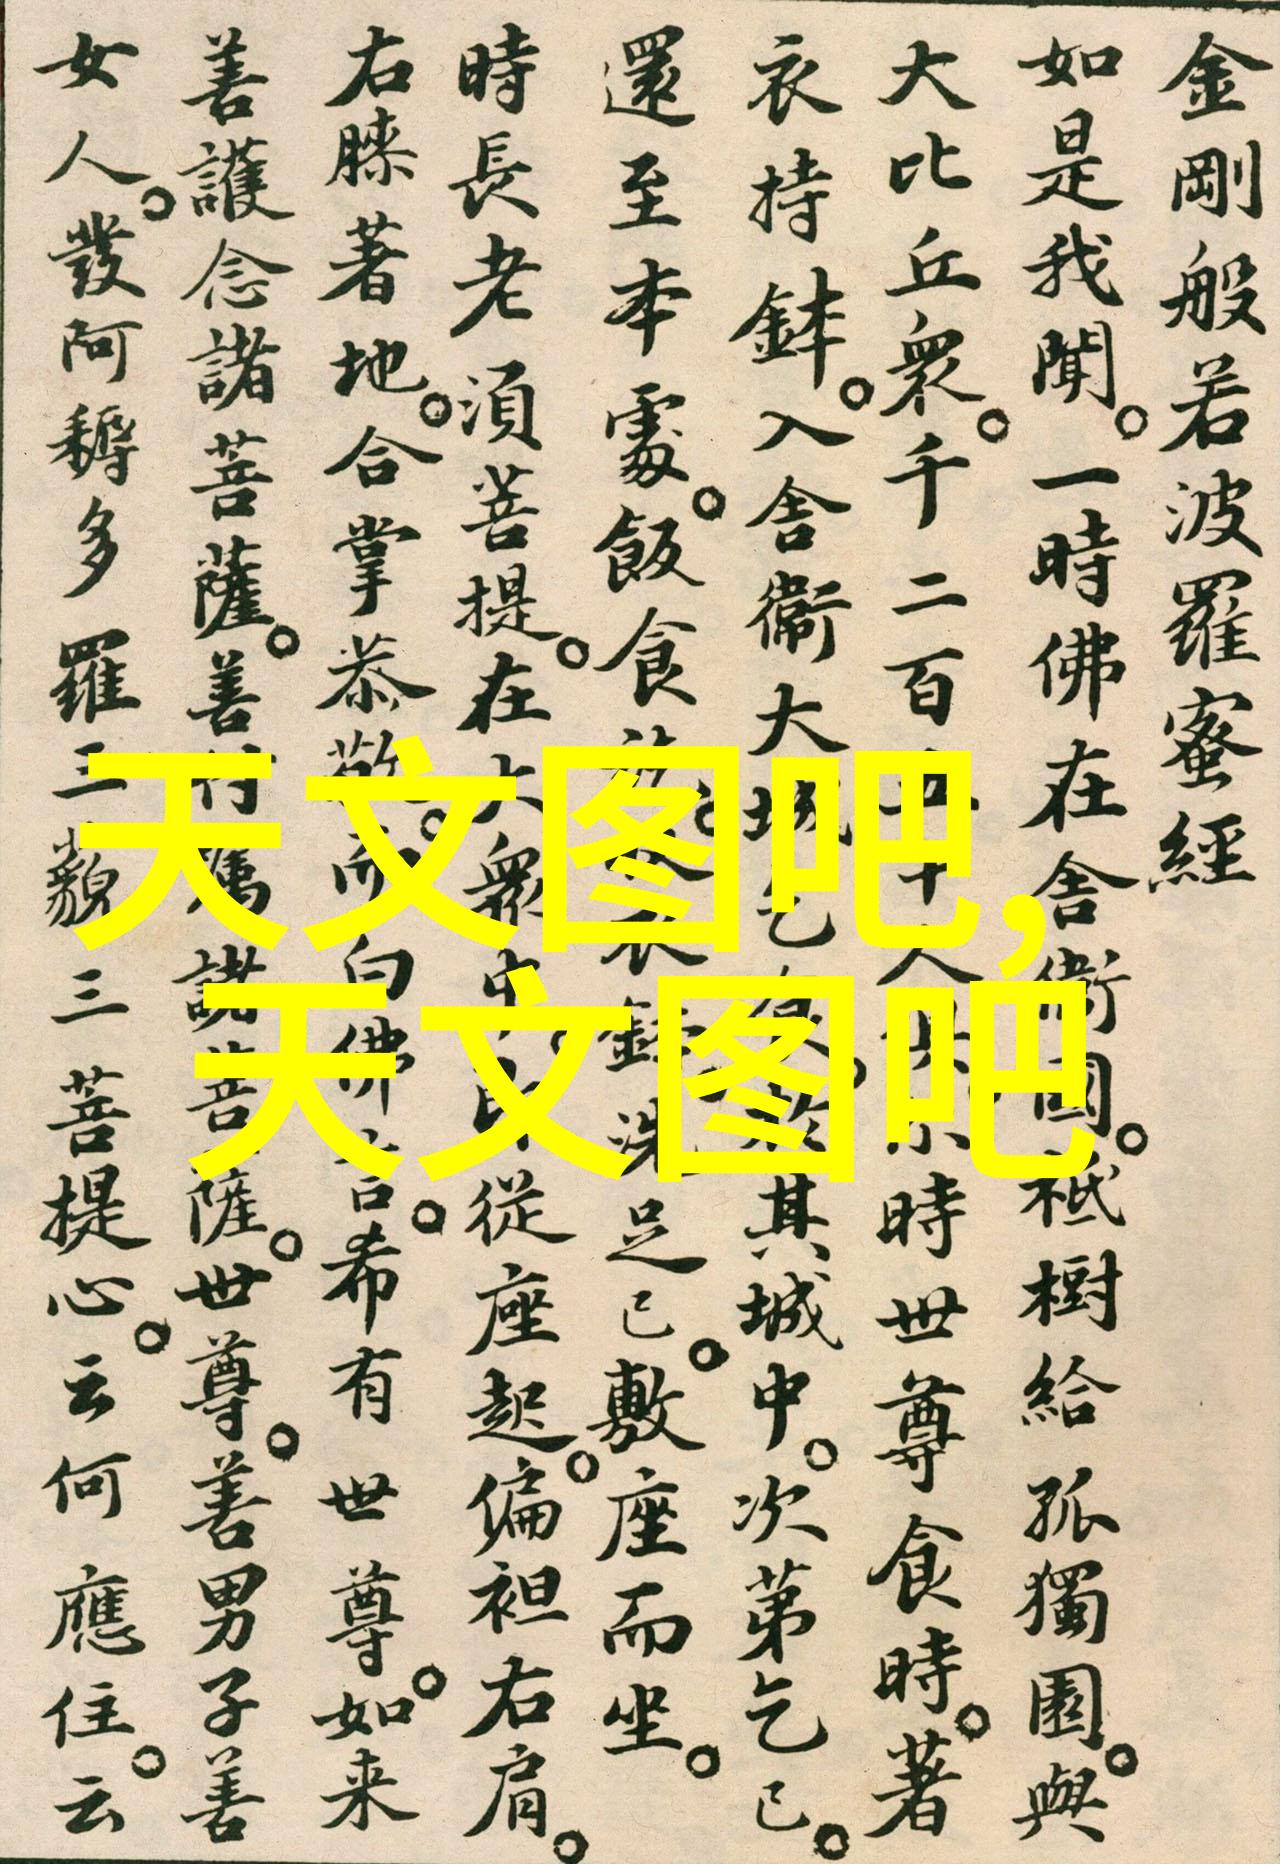 金剛般若波羅蜜經
如是我聞。一時佛在舍衛國。祇樹給孤獨園。與
大比丘衆。千二百五十人俱。尒時世尊食時。著
衣持鉢。入舍衛大城乞食。於其城中。次第乞已。
還至本處。飯食訖。收衣鉢。洗足已。敷座而坐。
時長老須菩提。在大衆中。即從座起。偏袒右肩。
右膝著地。合掌恭敬。而白佛言。希有世尊。如来
善護念諸菩薩。善付嘱諸菩薩。世尊。善男子善
女人。發阿耨多羅三藐三菩提心。云何應住。云
天文图吧,
天文图吧